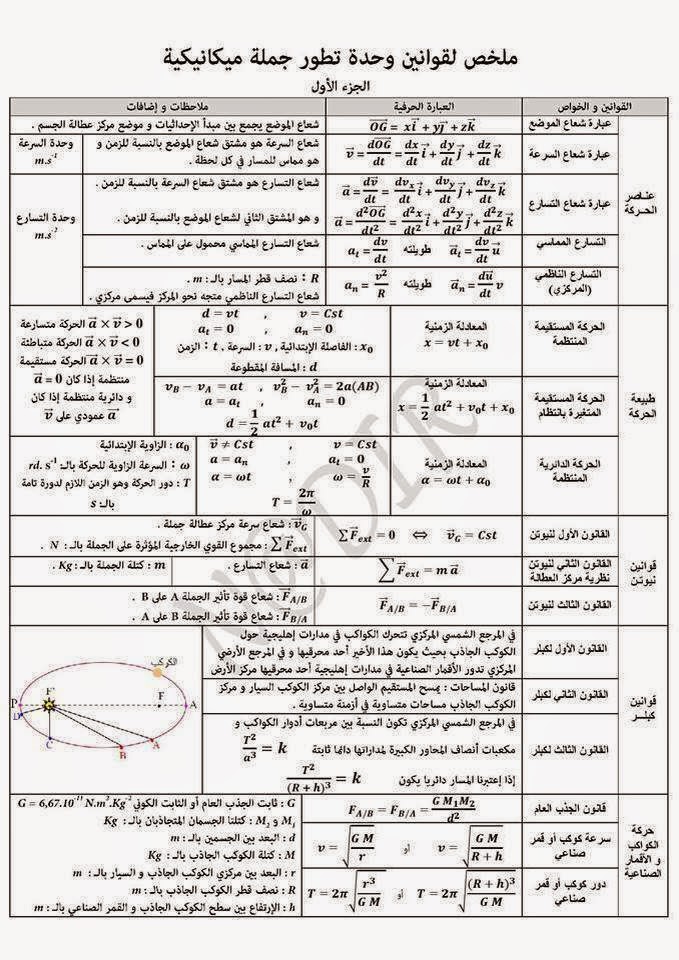 ملخص لقوانين وحدة تطور جملة ميكانيكية
الجزء الأول
القوانين و الخواص
العبارة الحرفية
ملاحظات و إضافات
عناصر
الحركة
عبارة شعاع الموضع
OG⃗ = xi⃗ + yj⃗ + zk⃗
شعاع الموضع يجمع بين مبدأ الإحداثيات و موضع مركز عطالة الجسم .
عبارة شعاع السرعة
v⃗ = dOG⃗/dt = dx/dt i⃗ + dy/dt j⃗ + dz/dt k⃗
شعاع السرعة هو مشتق شعاع الموضع بالنسبة للزمن و
هو مماس للمسار في كل لحظة .
وحدة السرعة
m.s⁻¹
عبارة شعاع التسارع
a⃗ = dv⃗/dt = dvₓ/dt i⃗ + dv_y/dt j⃗ + dv_z/dt k⃗
a⃗ = d²OG⃗/dt² = d²x/dt² i⃗ + d²y/dt² j⃗ + d²z/dt² k⃗
شعاع التسارع هو مشتق شعاع السرعة بالنسبة للزمن .
و هو المشتق الثاني لشعاع الموضع بالنسبة للزمن .
وحدة التسارع
m.s⁻²
التسارع المماسي
a⃗_t = dv/dt u⃗ طويلته a_t = dv/dt
شعاع التسارع المماسي محمول على المماس .
التسارع الناظمي
(المركزي)
a⃗_n = du⃗/dt v طويلته a_n = v²/R
R : نصف قطر المسار بالـ : m .
شعاع التسارع الناظمي متجه نحو المركز فيسمى مركزي .
طبيعة
الحركة
الحركة المستقيمة
المنتظمة
المعادلة الزمنية
x = vt + x₀
d = vt , v = Cst
a_t = 0 , a_n = 0
x₀ : الفاصلة الإبتدائية , v : السرعة , t : الزمن
d : المسافة المقطوعة
a⃗ × v⃗ > 0 الحركة متسارعة
a⃗ × v⃗ < 0 الحركة متباطئة
a⃗ × v⃗ = 0 الحركة مستقيمة
منتظمة إذا كان a⃗ = 0
و دائرية منتظمة إذا كان
a⃗ عمودي على v⃗
الحركة المستقيمة
المتغيرة بانتظام
المعادلة الزمنية
x = 1/2 at² + v₀t + x₀
v_B − v_A = at , v_B² − v_A² = 2a(AB)
a = a_t , a_n = 0
d = 1/2 at² + v₀t
الحركة الدائرية
المنتظمة
المعادلة الزمنية
α = ωt + α₀
v⃗ ≠ Cst , v = Cst
a = a_n , a_t = 0
α = ωt , ω = v/R
T = 2π/ω
α₀ : الزاوية الإبتدائية
ω : السرعة الزاوية للحركة بالـ: rd. s⁻¹
T : دور الحركة وهو الزمن اللازم لدورة تامة
بالـ: s
قوانين
نيوتن
القانون الأول لنيوتن
∑F⃗_ext = 0 ⇔ v⃗_G = Cst
v⃗_G : شعاع سرعة مركز عطالة جملة .
∑F⃗_ext : مجموع القوى الخارجية المؤثرة على الجملة بالـ : N .
القانون الثاني لنيوتن
نظرية مركز العطالة
∑F⃗_ext = m a⃗
a⃗ : شعاع التسارع .
m : كتلة الجملة بالـ : Kg .
القانون الثالث لنيوتن
F⃗_A/B = −F⃗_B/A
F⃗_A/B : شعاع قوة تأثير الجملة A على B .
F⃗_B/A : شعاع قوة تأثير الجملة B على A .
قوانين
كبلــر
القانون الأول لكبلر
في المرجع الشمسي المركزي تتحرك الكواكب في مدارات إهليجية حول
الكوكب الجاذب بحيث يكون هذا الأخير أحد محرقيها و في المرجع الأرضي
المركزي تدور الأقمار الصناعية في مدارات إهليجية أحد محرقيها مركز الأرض
القانون الثاني لكبلر
قانون المساحات : يمسح المستقيم الواصل بين مركز الكوكب السيار و مركز
الكوكب الجاذب مساحات متساوية في أزمنة متساوية .
القانون الثالث لكبلر
في المرجع الشمسي المركزي تكون النسبة بين مربعات أدوار الكواكب و
مكعبات أنصاف المحاور الكبيرة لمداراتها دائما ثابتة T²/a³ = k
إذا إعتبرنا المسار دائريا يكون T²/(R + h)³ = k
الكوكب
P
F'
F
A
D
C
B
A
حركة
الكواكب
و الأقمار
الصناعية
قانون الجذب العام
F_A/B = F_B/A = G M₁M₂/d²
سرعة كوكب أو قمر
صناعي
v = √(G M/(R + h)) أو v = √(G M/r)
دور كوكب أو قمر
صناعي
T = 2π√((R + h)³/G M) أو T = 2π√(r³/G M)
G : ثابت الجذب العام أو الثابت الكوني G = 6,67.10⁻¹¹ N.m².Kg⁻²
M₁ و M₂ : كتلتا الجسمان المتجاذبان بالـ : Kg
d : البعد بين الجسمين بالـ : m
M : كتلة الكوكب الجاذب بالـ : Kg
r : البعد بين مركزي الكوكب الجاذب و السيار بالـ : m
R : نصف قطر الكوكب الجاذب بالـ : m
h : الإرتفاع بين سطح الكوكب الجاذب و القمر الصناعي بالـ : m